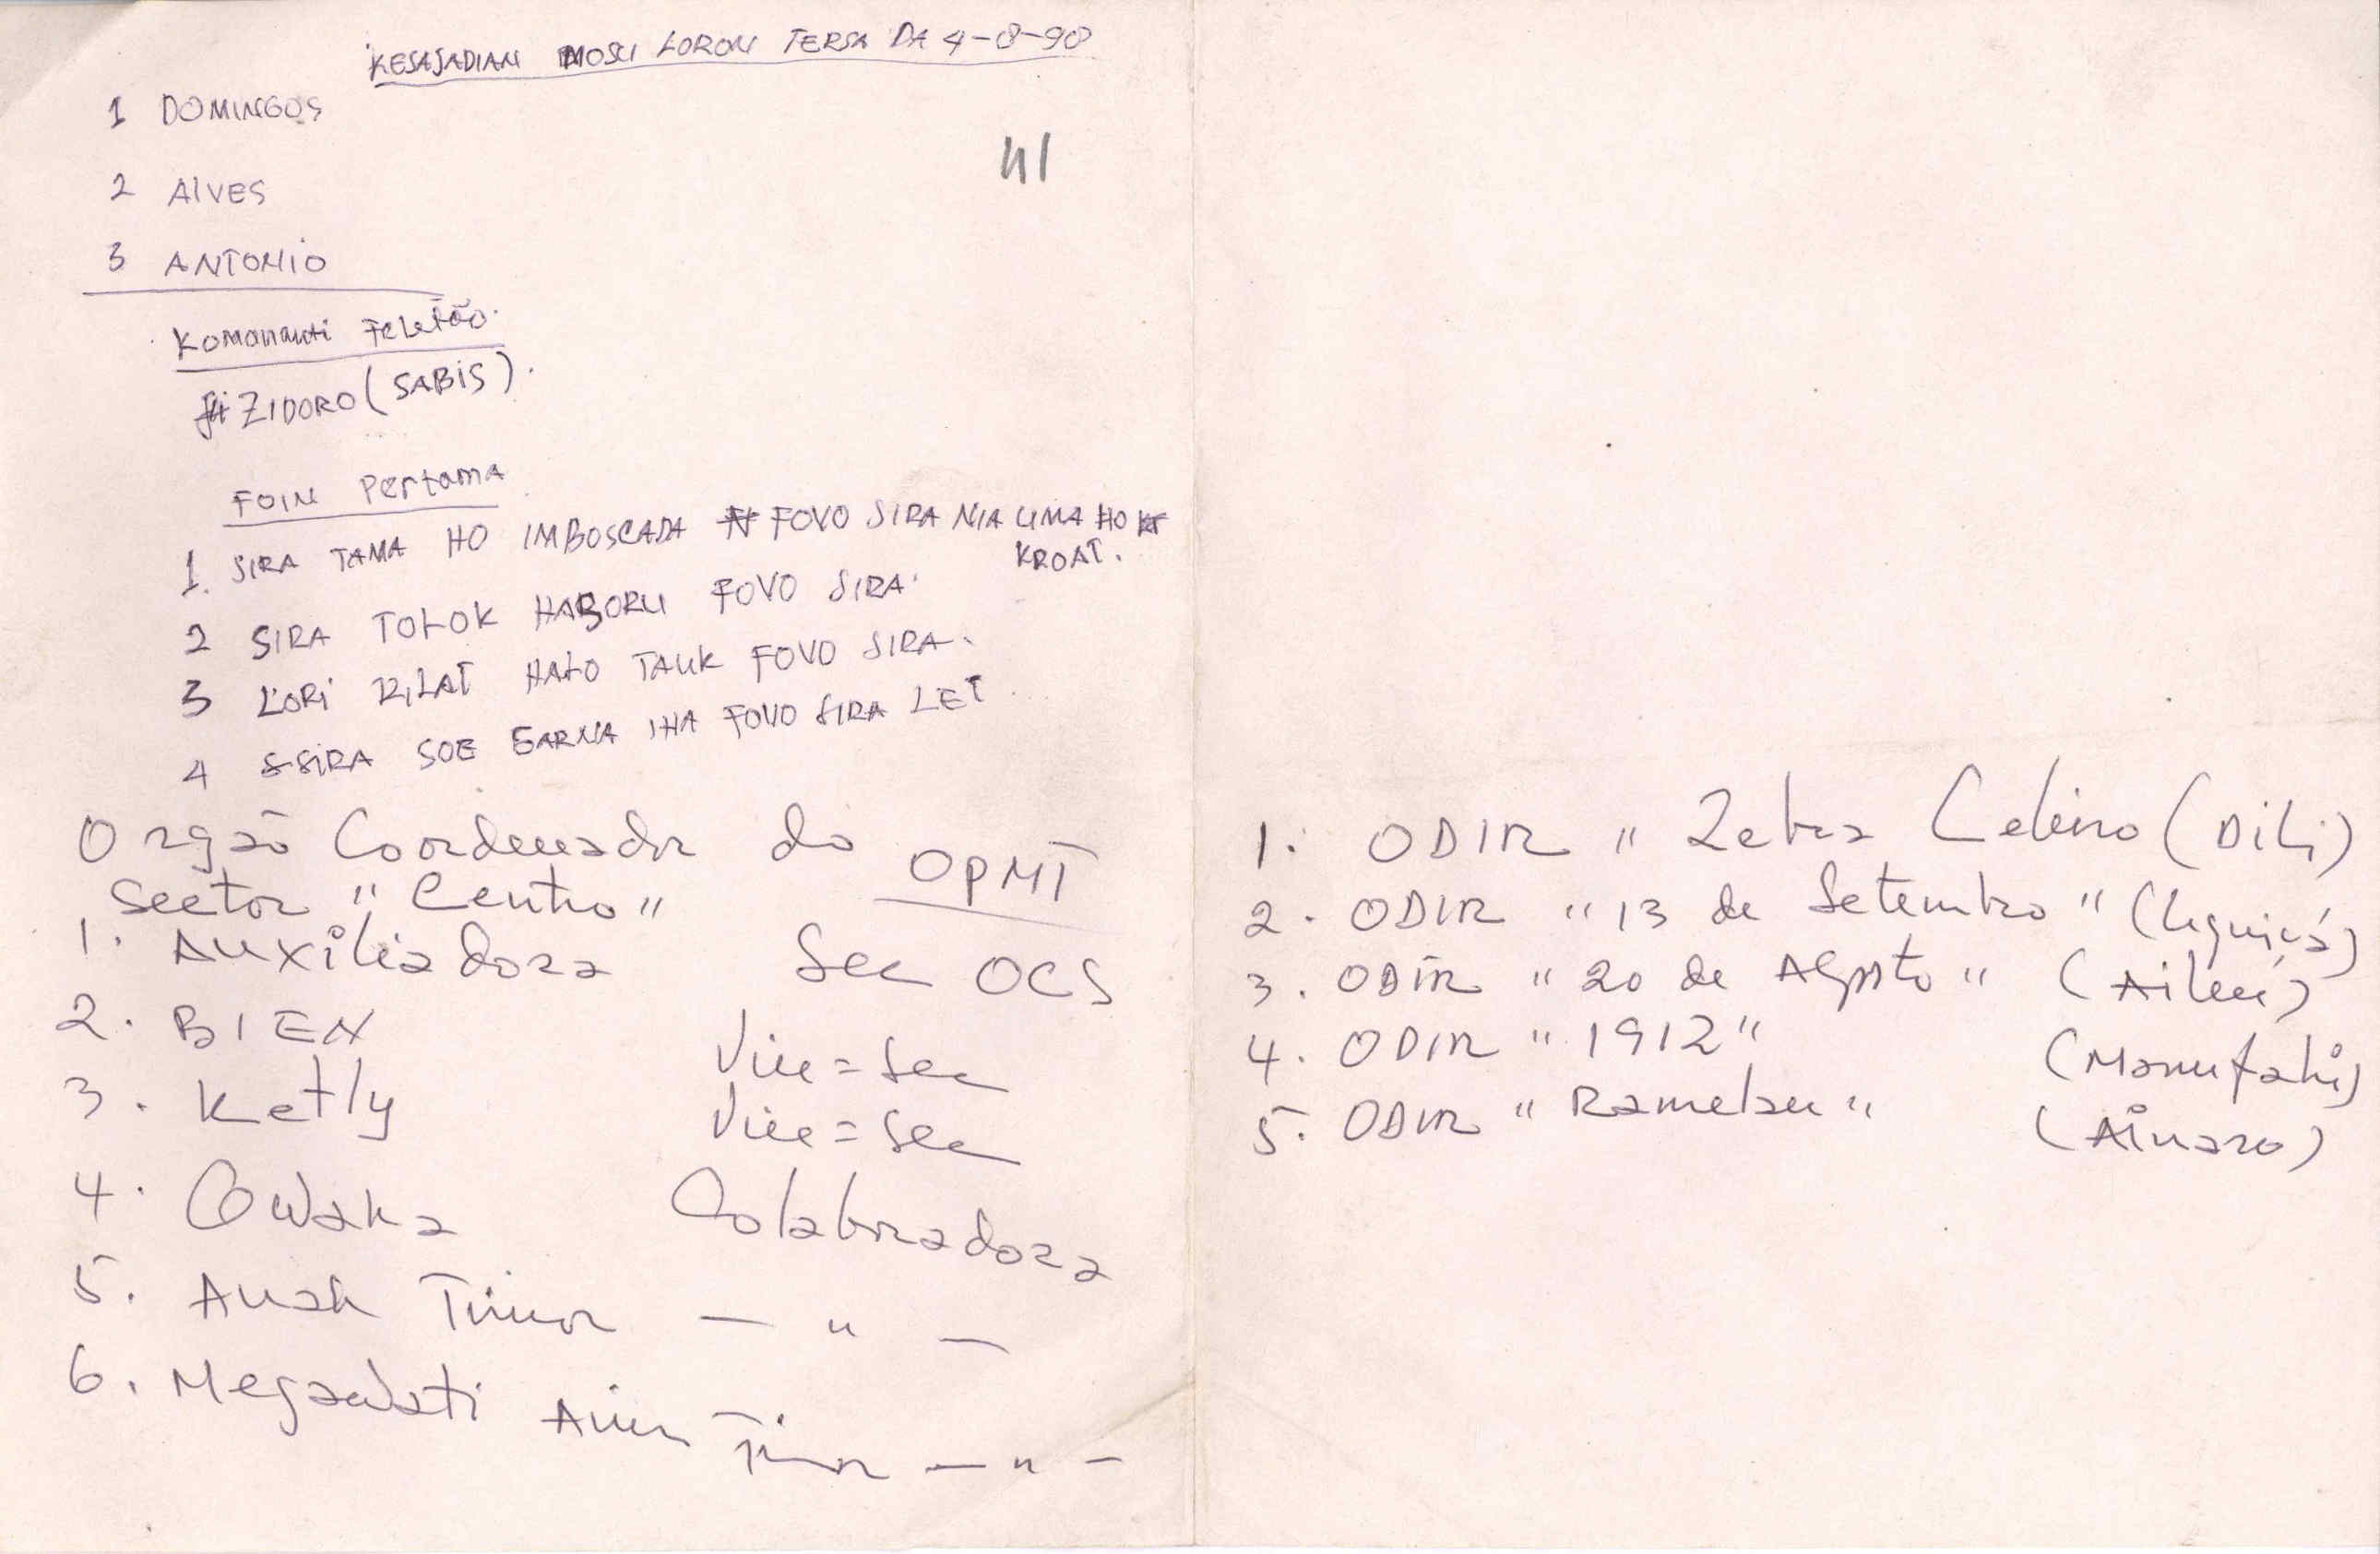 KESAJADIAN MOSU LORON TERSA DA 4-8-90
1 DOMINGOS
41
2 AlVES
3 ANTONIO
Komananti Feletão.
ZIDORO (SABIS).
FOIN Pertama
1. SIRA TAMA HO IMBOSCADA FOVO SIRA NIA UMA HO
KROAT.
2 SIRA TOLOK HABORU FOVO SIRA.
3 LORI KILAT HALO TAUK FOVO SIRA.
4 SIRA SOE GARNA IHA FOVO SIRA LET
Orgão Coordenador do OPMT
Sector "Centro"
1. Auxiliadora Sec OCS
2. BIEN Vice=Sec
3. Ketly Vice=Sec
4. Colaboradora
5. Anak Timor — " —
6. Megawati Timor — " —
1. ODIR " (Dili)
2. ODIR "13 de Setembro" (Liquiçá)
3. ODIR "20 de Agosto" (Aileu)
4. ODIR "1912" (Manufahi)
5. ODIR "Ramelau" (Ainaro)